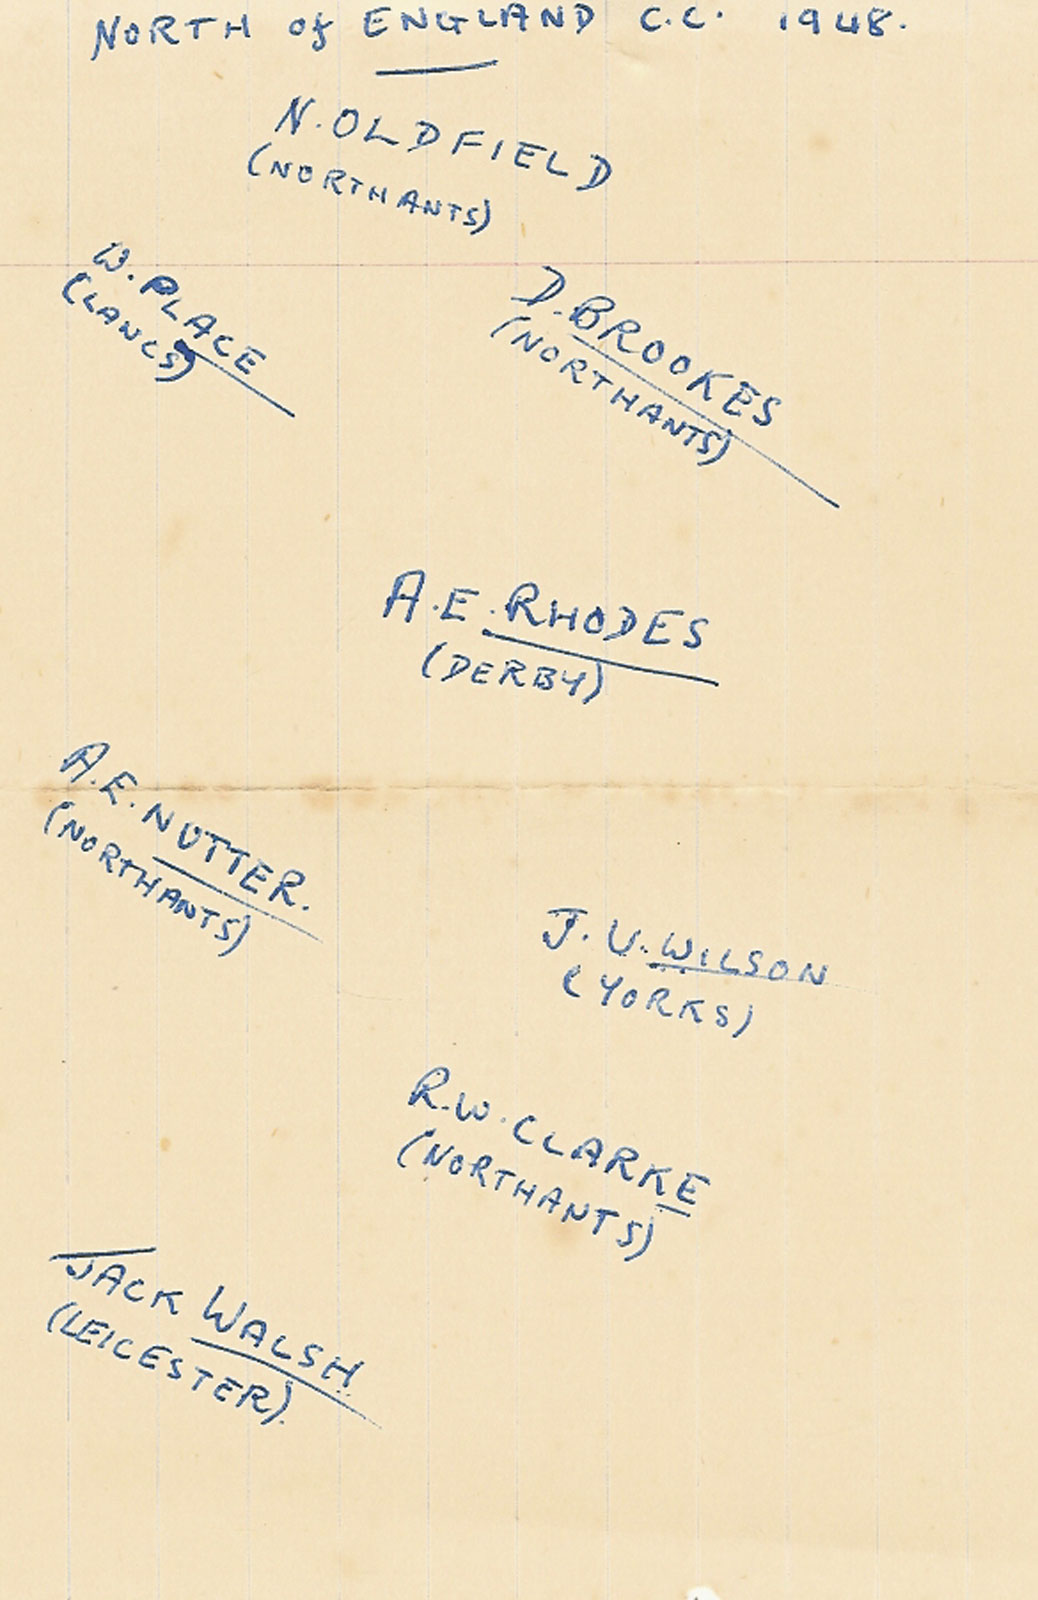 NORTH of ENGLAND C.C. 1948.
N. OLDFIELD
(NORTHANTS)
W. PLACE
(LANCS)
D. BROOKES
(NORTHANTS)
A.E. RHODES
(DERBY)
A.E. NUTTER.
(NORTHANTS)
J. V. WILSON
(YORKS)
R.W. CLARKE
(NORTHANTS)
JACK WALSH
(LEICESTER).